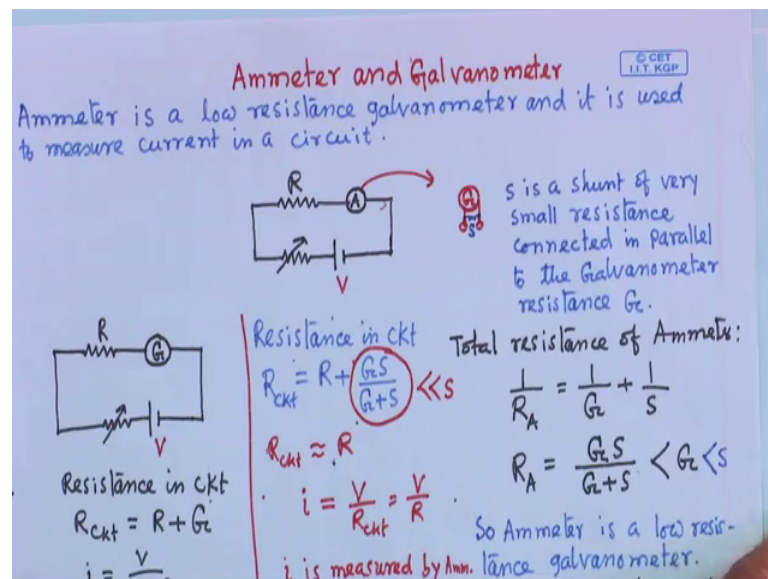 Ammeter and Galvanometer
© CET
I.I.T. KGP
Ammeter is a low resistance galvanometer and it is used
to measure current in a circuit.
R
A
V
G
S
S is a shunt of very
small resistance
connected in parallel
to the Galvanometer
resistance G.
R
G
V
Resistance in ckt
R_ckt = R+G
i = V
Resistance in ckt
R_ckt = R + GS/G+S << S
R_ckt ≈ R
i = V/R_ckt = V/R
i is measured by Amm.
Total resistance of Ammeter:
1/R_A = 1/G + 1/S
R_A = GS/G+S < G < S
So Ammeter is a low resis-
tance galvanometer.